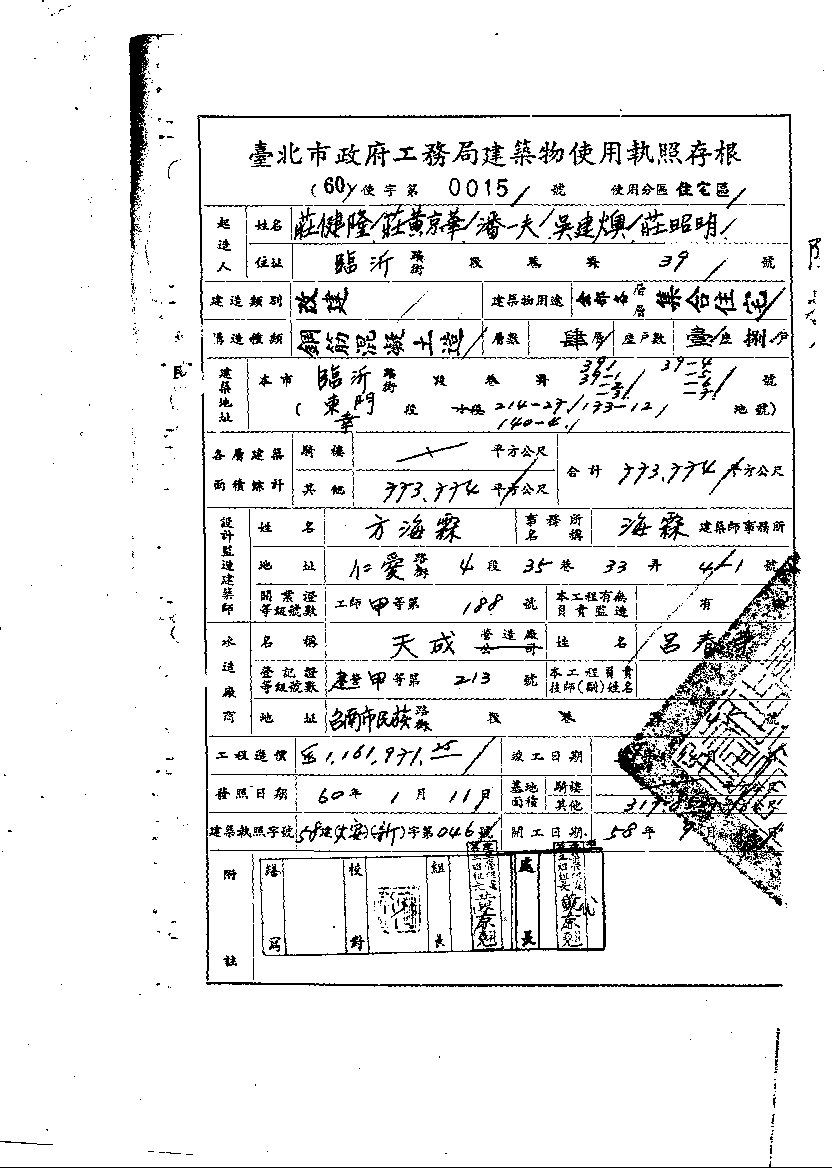 臺北市政府工務局建築物使用執照存根
(60) 使字第 0015 號 使用分區 住宅區
起造人 姓名 莊健隆 莊黃京華 潘一夫 吳建煥 莊昭明
住址 臨沂 路街 段 巷 弄 39 號
建造類別 改建 建築物用途 全部各層 集合住宅
構造種類 鋼筋混凝土造 層數 肆層 座戶數 壹座 捌戶
建築地址 本市 臨沂 路街 段 巷 弄 39 39-1 -2 -3 39-4 -5 -6 -7 號
( 東門 段 小段 214-27 133-12 140-4 地號)
各層建築面積總計 騎樓 平方公尺 合計 773.774 平方公尺
其他 773.774 平方公尺
設計監造建築師 姓名 方海霖 事務所名稱 海霖 建築師事務所
地址 仁愛 路街 4 段 35 巷 33 弄 4-1 號
開業證等級號數 工師 甲 等第 188 號 本工程有無負責監造 有
承造廠商 名稱 天成 營造廠 公司 姓名 呂春
登記證等級號數 建營 甲 等第 213 號 本工程負責技師(副)姓名
地址 台南市民族 路街 段 巷 號
工程造價 1,161,971.25 竣工日期
發照日期 60 年 1 月 11 日 基地面積 騎樓
其他
建築執照字號 58 建(大安)(新)字第 046 號 開工日期 58 年 9 月
附註 繕寫 校對 組長 處長 代